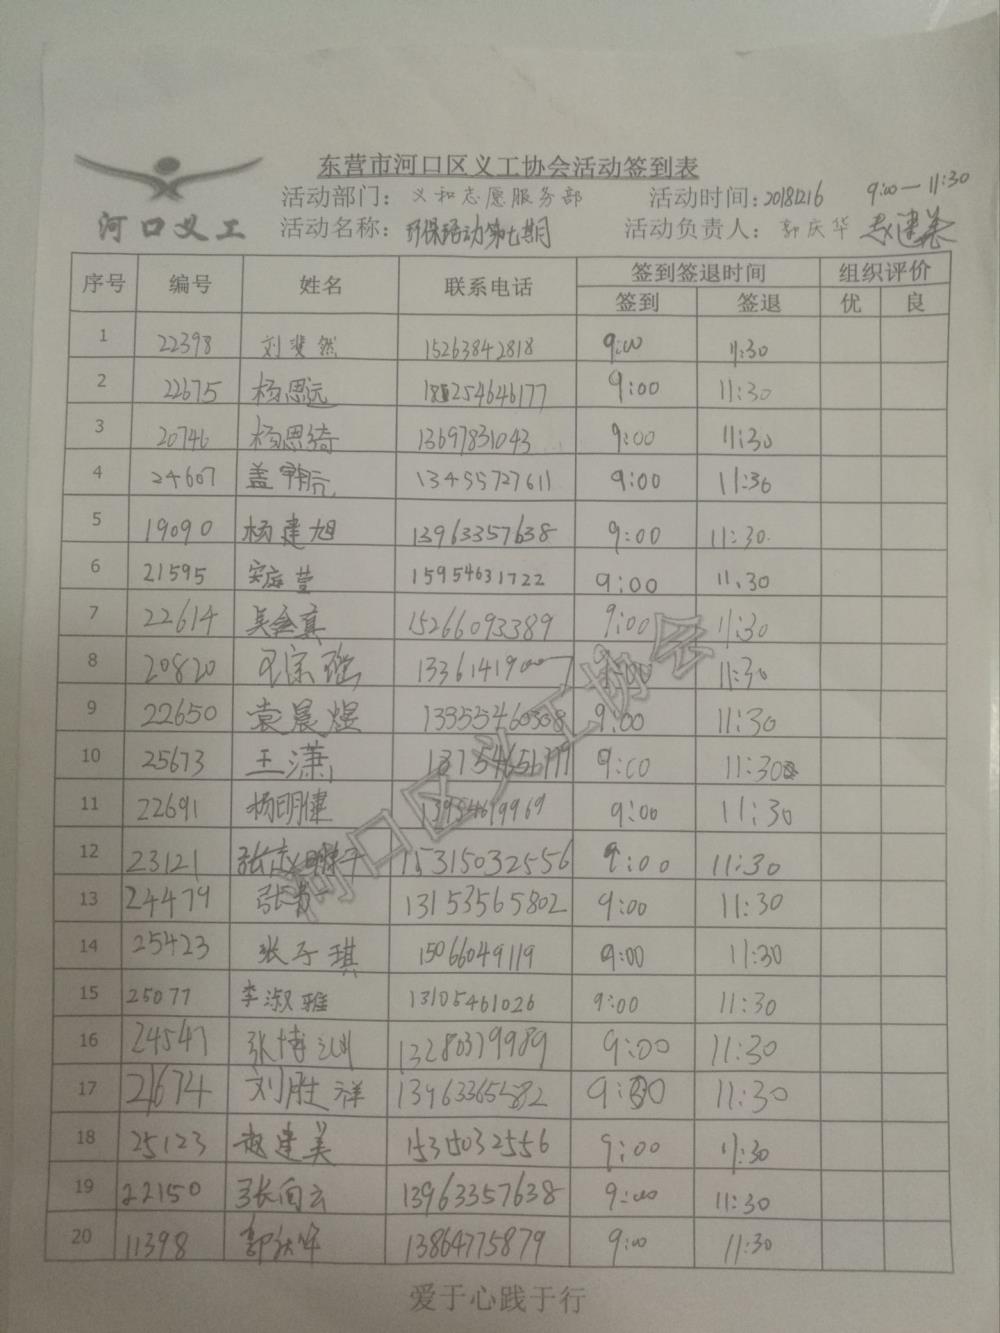 东营市河口区义工协会活动签到表
河口义工
活动部门：义和志愿服务部 活动时间：20181216 9:00—11:30
活动名称：环保活动第七期 活动负责人：郭庆华 赵建美
序号 编号 姓名 联系电话 签到签退时间 组织评价
签到 签退 优 良
1 22398 刘斐然 15263842818 9:00 11:30
2 22675 杨思远 18254646177 9:00 11:30
3 20746 杨思绮 13697831043 9:00 11:30
4 24607 盖 13455727611 9:00 11:30
5 19090 杨建旭 13963357638 9:00 11:30
6 21595 安庭莹 15954631722 9:00 11:30
7 22614 吴 15266093389 9:00 11:30
8 20820 9:00 11:30
9 22650 袁晨煜 13355460308 9:00 11:30
10 25673 王潇 9:00 11:30
11 22691 杨明健 13954619969 9:00 11:30
12 23121 张 15315032556 9:00 11:30
13 24479 张 13153565802 9:00 11:30
14 25423 张子琪 15066049119 9:00 11:30
15 25077 李淑雅 13105461026 9:00 11:30
16 24547 张博 13280379989 9:00 11:30
17 21674 刘胜祥 13963365582 11:30
18 25123 赵建美 15315032556 9:00 11:30
19 22150 张向云 13963357638 9:00 11:30
20 11398 郭庆华 13864775879 9:00 11:30
河口区义工协会
爱于心践于行